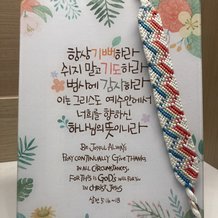 항상 기뻐하라
쉬지 말고 기도하라
범사에 감사하라
이는 그리스도 예수 안에서
너희를 향하신
하나님의 뜻이니라
Be Joyful Always
Pray Continually Give Thanks
in All Circumstances,
For This is God's will for you
in Christ Jesus
살전 5:16-18